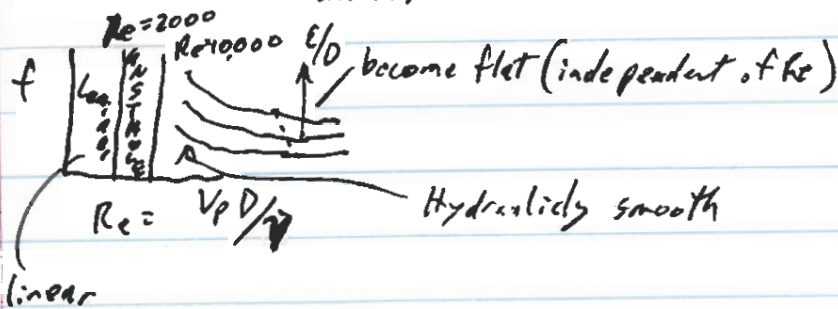 Re=2000
Re=10,000
ε/D
f
become flat (independent of Re)
Laminar
Re = Vρ D/η
Hydraulicly smooth
linear